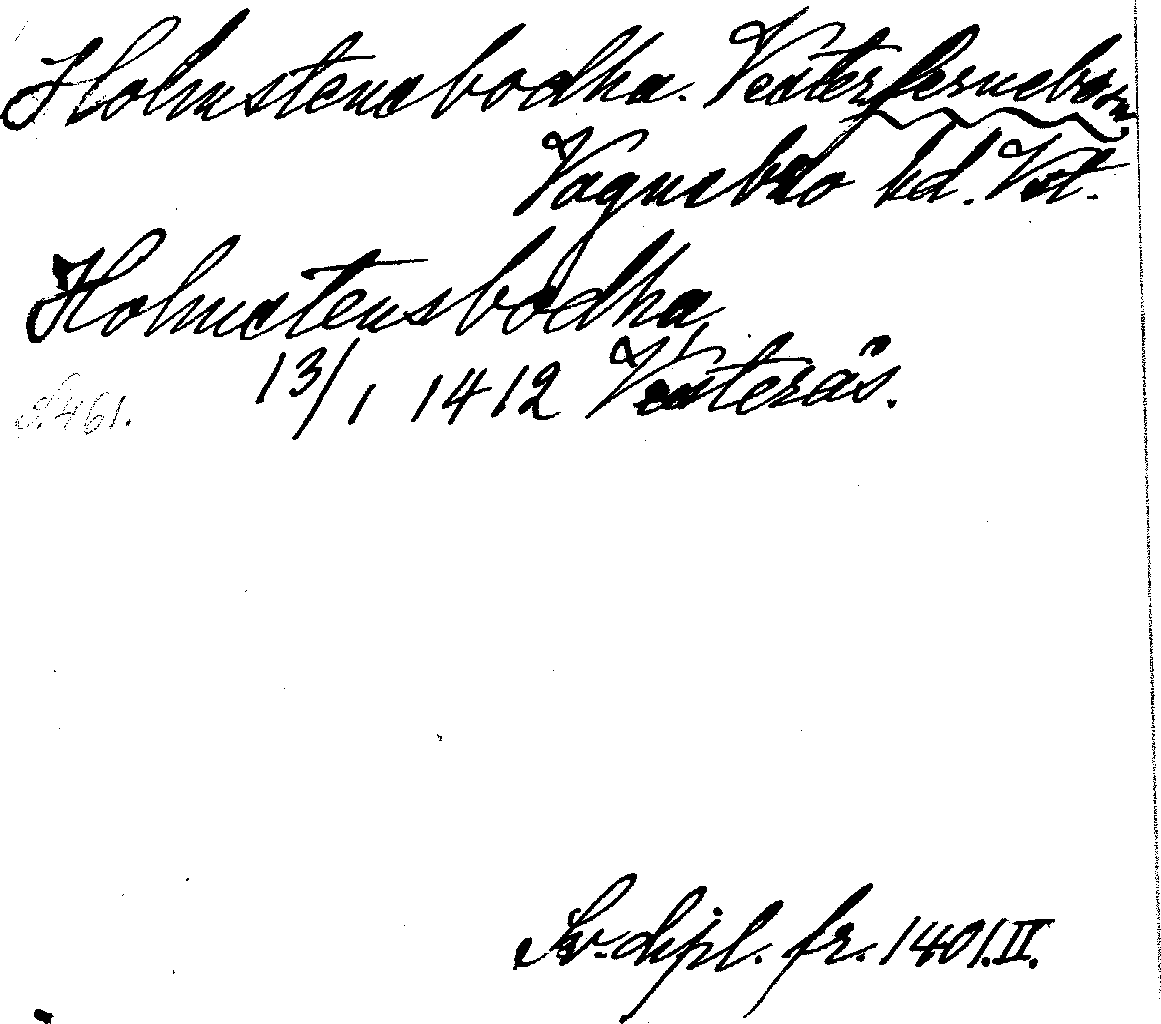 Holmstensbodha. Vesterfernebo sn
Vagnsbro hd. Vst.
Holmstensbodha
13/1 1412 Vesterås.
s. 461.
Sv. dipl. fr. 1401. II.